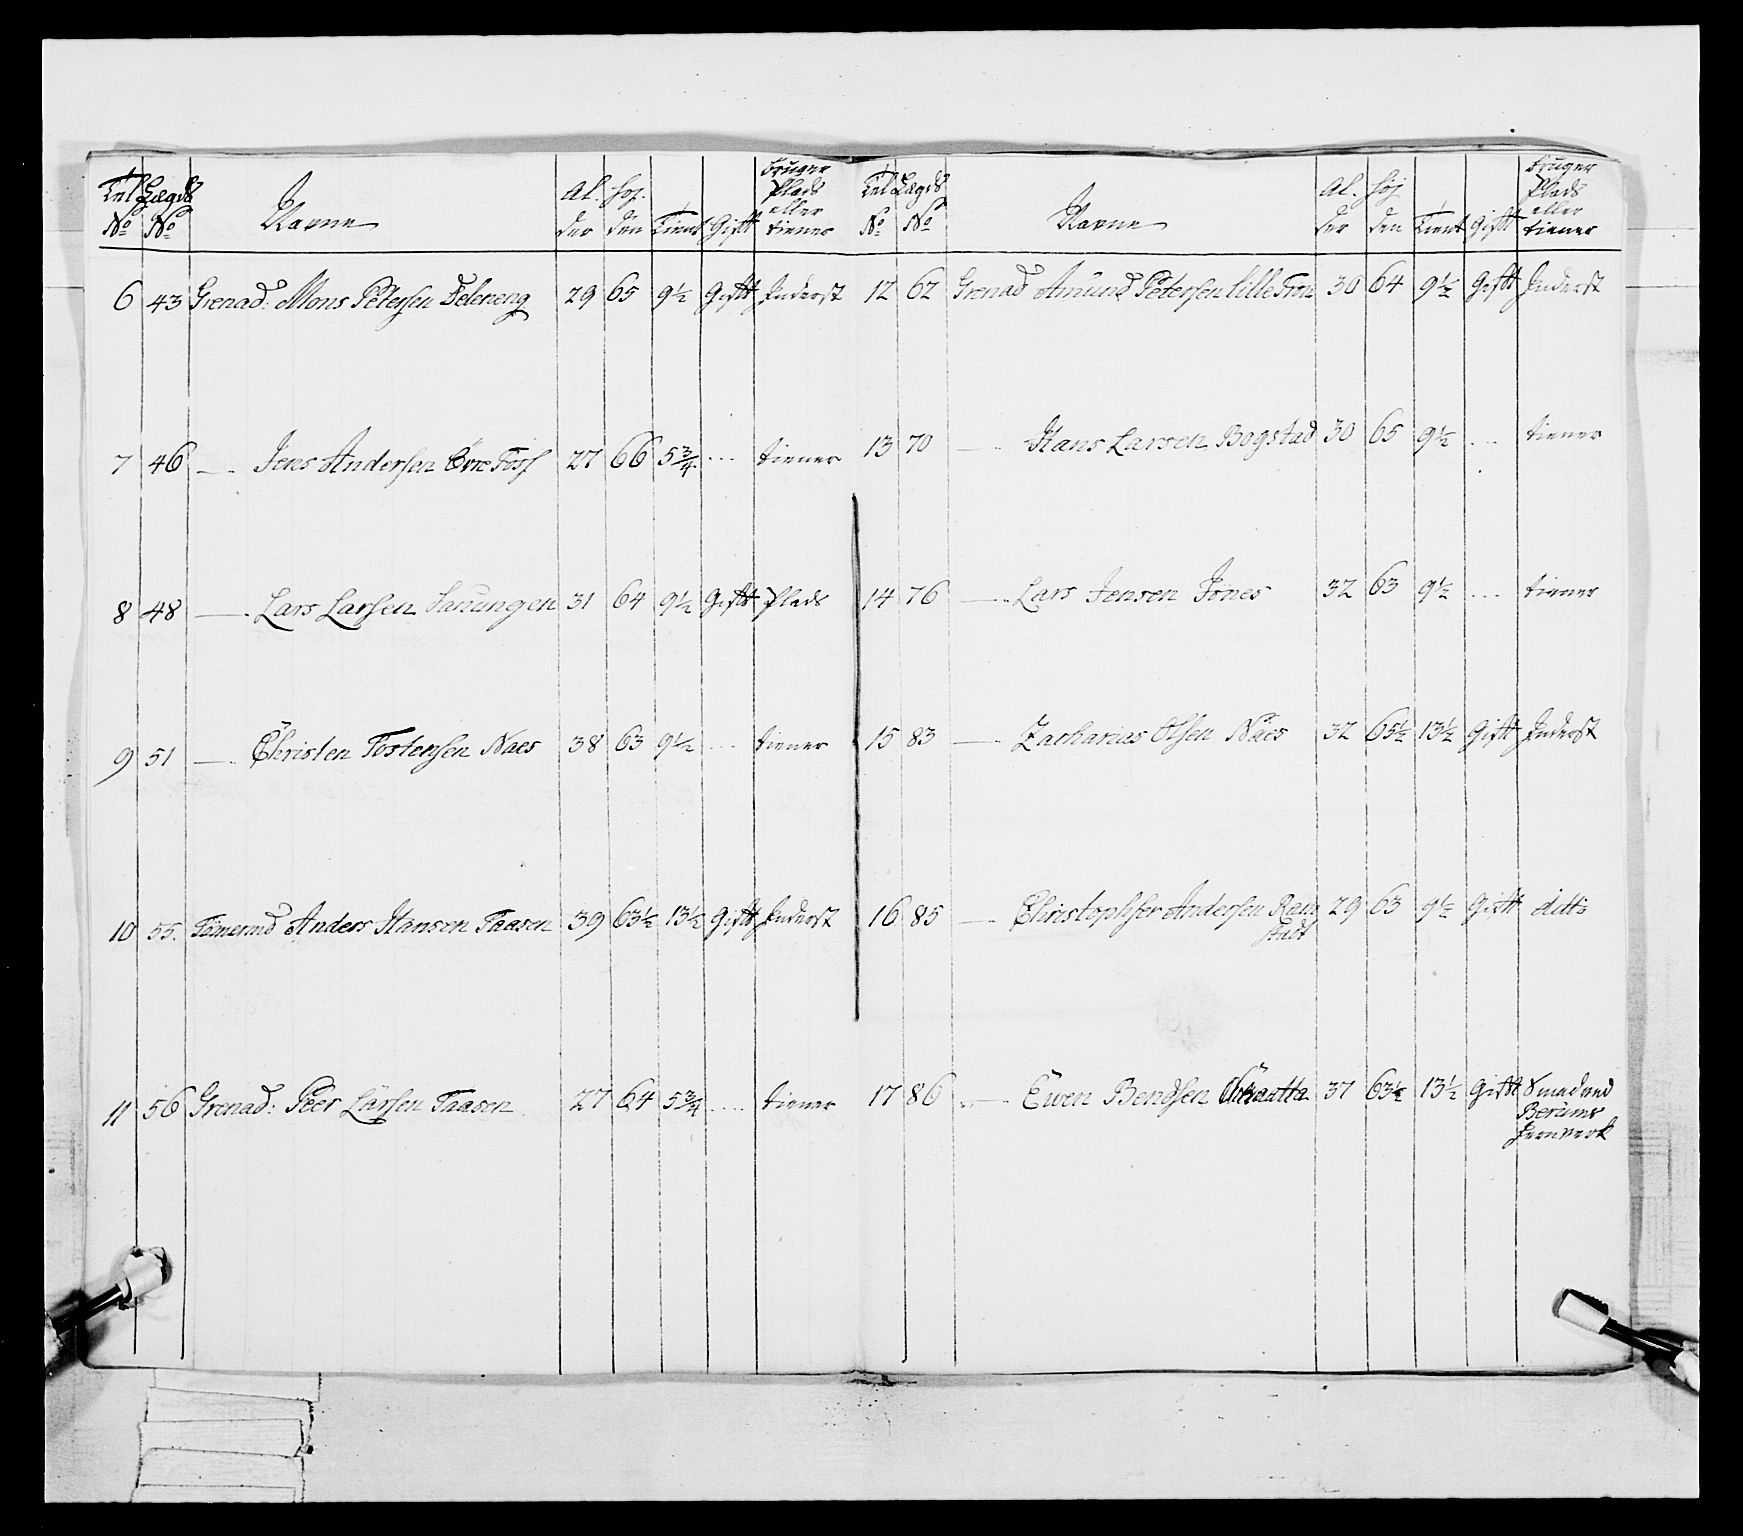 Tal No Lægds No Navne Al. der Høj. den Tient Gift bruger Plads eller tiener
6 43 Grenad: Mons Petersen Deleneng 29 65 9½ Gift Inderst
7 46 — Jens Andersen Øvre Foss 27 66 5¾ ... tiener
8 48 — Lars Larsen Sanungen 31 64 9½ Gift Plads
9 51 — Christen Tostensen Naes 38 63 9½ ... tiener
10 55. Tömermd Anders Hansen Taasen 39 63½ 13½ Gift Inderst
11 56 Grenad: Peer Larsen Taasen 27 64 5¾ .... tiener
Tal No Lægds No Navne Al. der Høj den Tient Gift bruger Plads eller tiener
12 62 Grenad Amund Petersen lille Fron 30 64 9½ Gift Inderst
13 70 — Hans Larsen Bogstad 30 65 9½ ... tiener
14 76 — Lars Jensen Jönes 32 63 9½ ... tiener
15 83 — Zacharias Olsen Näes 32 65½ 13½ Gift Inderst
16 85 — Christopher Andersen Ram 29 63 9½ Gift ditto
stad
17 86 — Ewen Bendsen 37 63½ 13½ Gift Smed ved
Berums
Jernverk